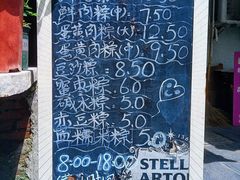 鲜肉粽(中) 7.50
蛋黄肉粽(大) 12.50
蛋黄肉粽(中) 9.50
豆沙粽: 8.50
蜜枣粽: 6.0
碱水粽: 5.0
赤豆粽: 5.0
血糯米粽 5.0
8:00-18:00
STELL
ARTOI